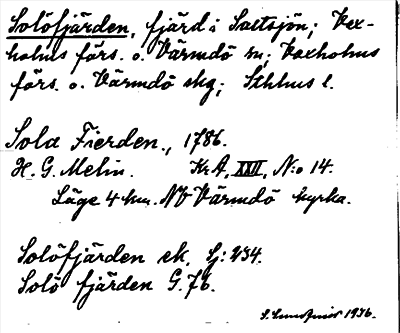 Solöfjärden, fjärd i Saltsjön; Vax-
holms förs. o. Värmdö sn; Vaxholms
förs. o. Värmdö skg; Sthlms l.
Sola Fierden., 1786.
H. G. Melin. Kr A, XXII, N:o 14.
Läge 4 km. NV Värmdö kyrka.
Solöfjärden ek. Sj: 234.
Solö fjärden G. 76.
1936.